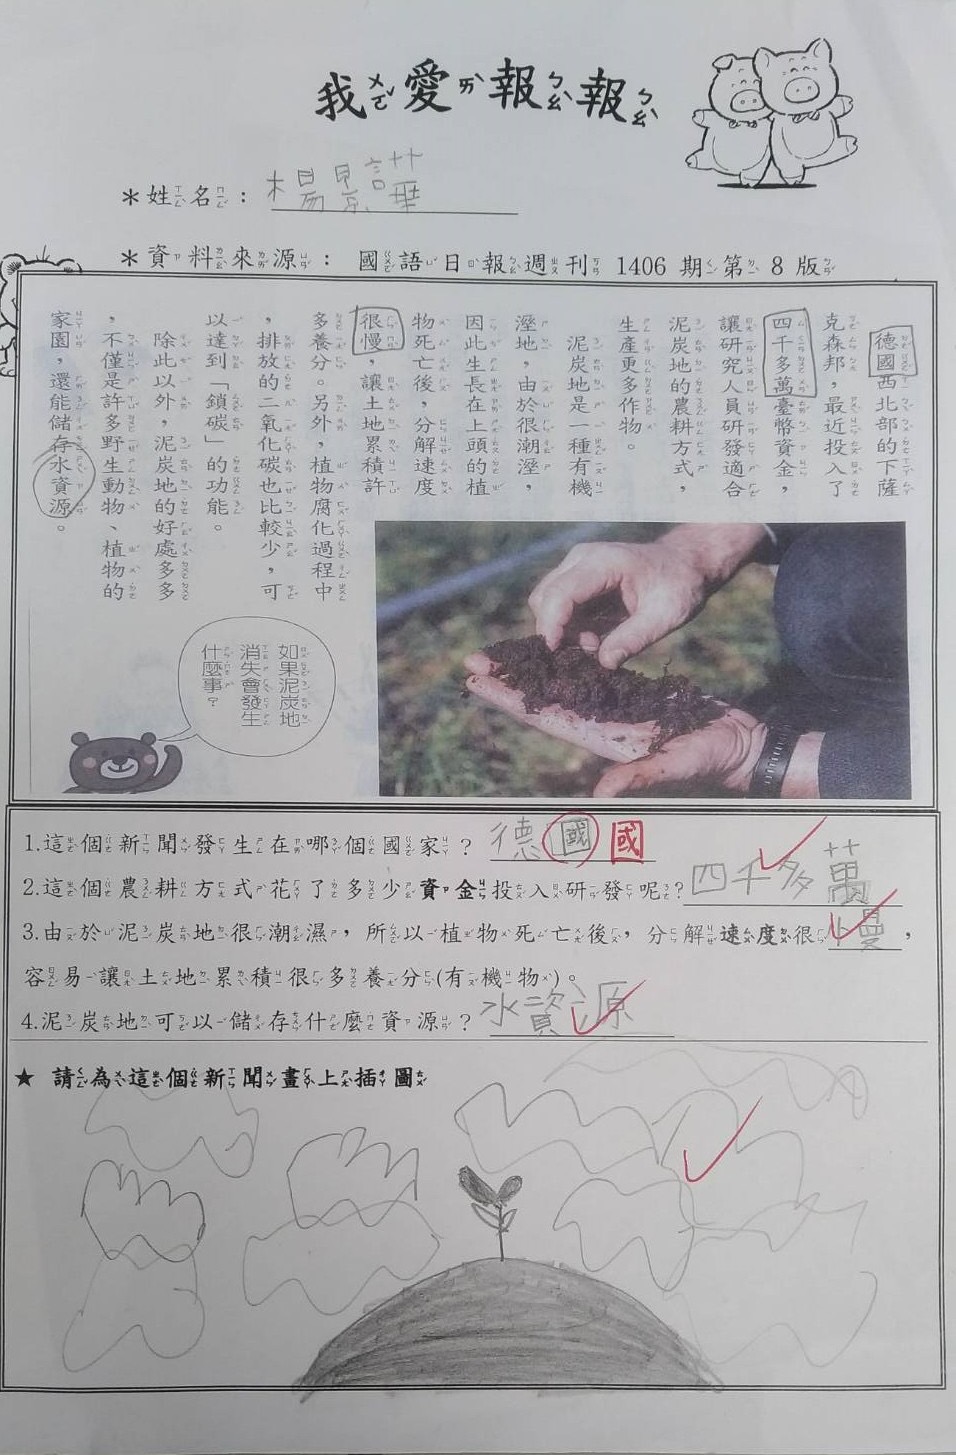 我愛報報
＊姓名：楊景譁
＊資料來源：國語日報週刊1406期第8版
德國西北部的下薩
克森邦，最近投入了
四千多萬臺幣資金，
讓研究人員研發適合
泥炭地的農耕方式，
生產更多作物。
泥炭地是一種有機
溼地，由於很潮溼，
因此生長在上頭的植
物死亡後，分解速度
很慢，讓土地累積許
多養分。另外，植物腐化過程中
，排放的二氧化碳也比較少，可
以達到「鎖碳」的功能。
除此以外，泥炭地的好處多多
，不僅是許多野生動物、植物的
家園，還能儲存水資源。
如果泥炭地
消失會發生
什麼事？
1.這個新聞發生在哪個國家？德國 國
2.這個農耕方式花了多少資金投入研發呢?四千多萬
3.由於泥炭地很潮濕，所以植物死亡後，分解速度很慢，
容易讓土地累積很多養分(有機物)。
4.泥炭地可以儲存什麼資源？水資源
★ 請為這個新聞畫上插圖